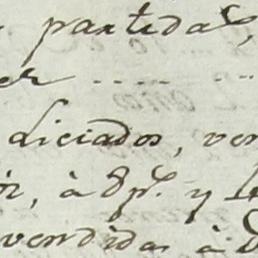 partidas,
er ....
liciados, ven
ór, à 8p.^s y
vendidas à 8